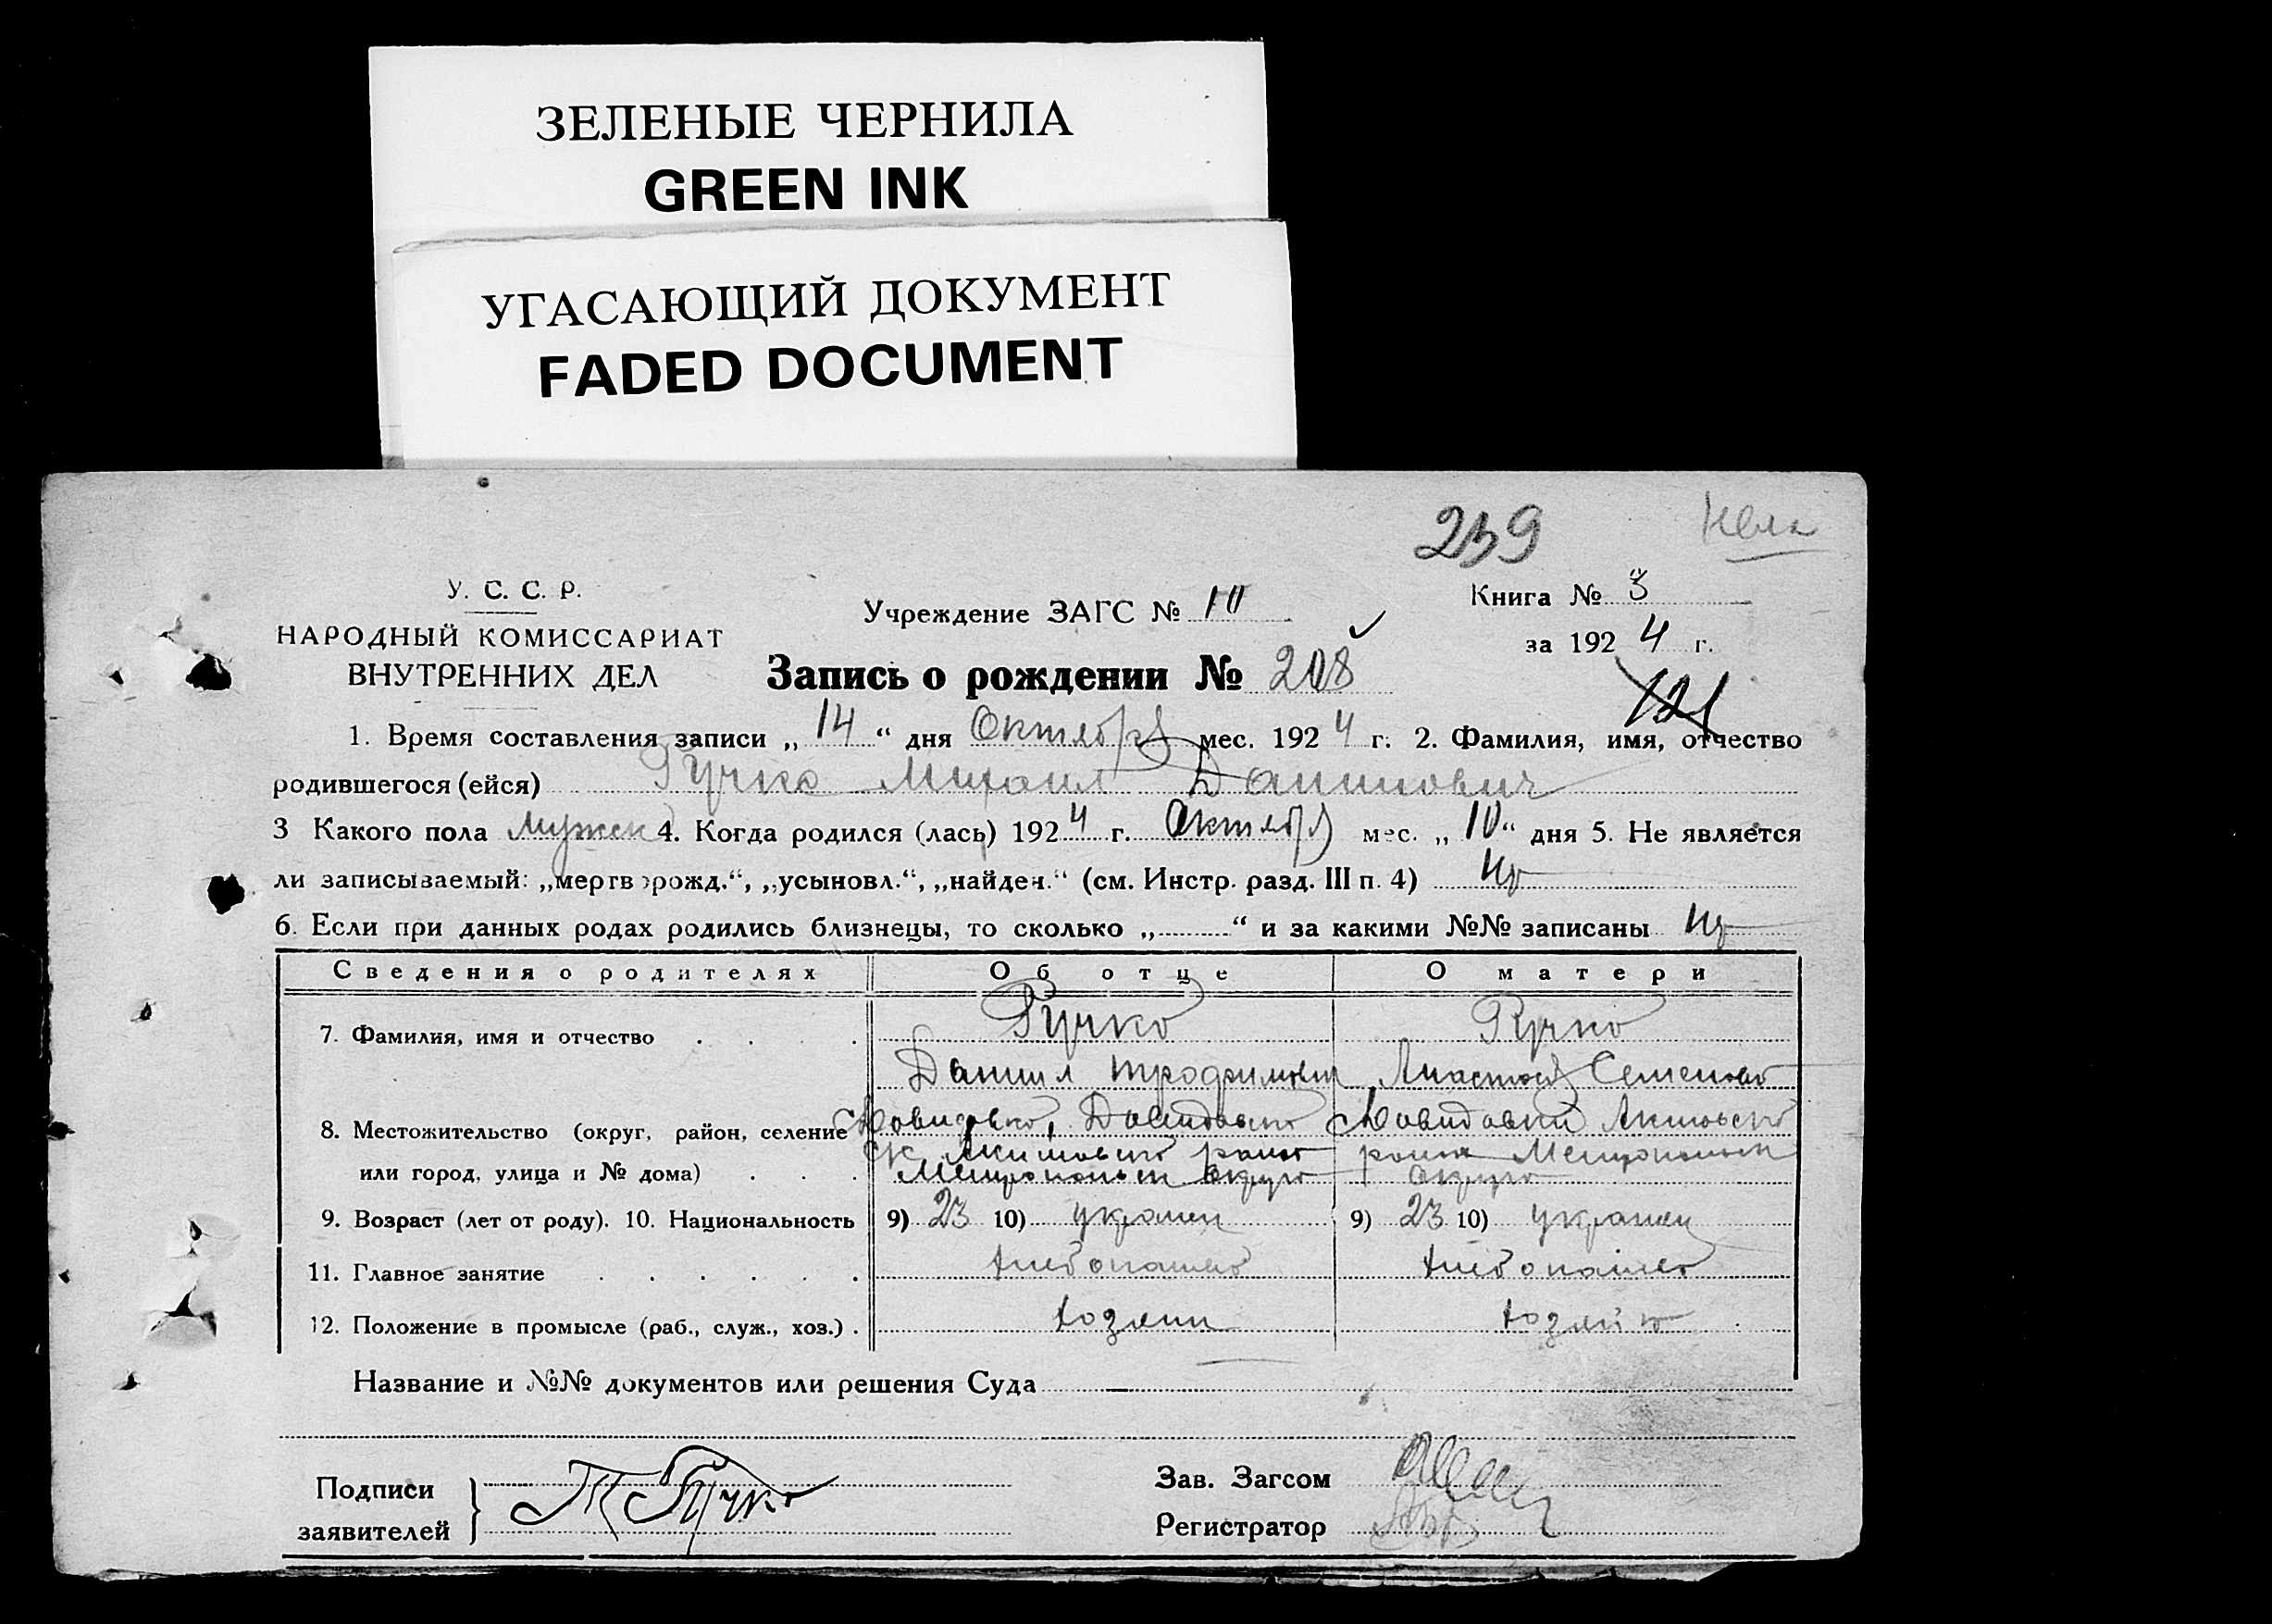 ЗЕЛЕНЫЕ ЧЕРНИЛА
GREEN INK
УГАСАЮЩИЙ ДОКУМЕНТ
FADED DOCUMENT
239
У. С. С. Р.
НАРОДНЫЙ КОМИССАРИАТ
ВНУТРЕННИХ ДЕЛ
Учреждение ЗАГС № 10
Книга № 3
за 1924 г.
Запись о рождении № 208
121
1. Время составления записи „14“ дня Октября мес. 1924 г. 2. Фамилия, имя, отчество
родившегося (ейся) Ручко Михаил Данилович
3 Какого пола мужск 4. Когда родился (лась) 1924 г. Октября мес. „10“ дня 5. Не является
ли записываемый: „мертворожд.“, „усыновл.“, „найден.“ (см. Инстр. разд. III п. 4)
6. Если при данных родах родились близнецы, то сколько „......“ и за какими №№ записаны
Сведения о родителях Об отце О матери
7. Фамилия, имя и отчество Ручко Ручко
Даниил Трофимович Анастасия Семенов
8. Местожительство (округ, район, селение Давидовка Акимовско
или город, улица и № дома) Акимовско район Мелитопольск округ района Мелитопольск округа
9. Возраст (лет от роду). 10. Национальность 9) 23 10) украин 9) 23 10) украин
11. Главное занятие хлебопашес хлебопашес
12. Положение в промысле (раб., служ., хоз.) хозяин хозяйк
Название и №№ документов или решения Суда
Подписи
заявителей
Т Ручко
Зав. Загсом
Регистратор